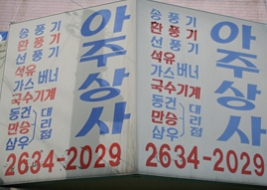 송풍기
환풍기
선풍기
석유
가스 버너
국수기계
동건
만승
삼우
대리점
아주상사
2634-2029
송풍기
환풍기
선풍기
석유
가스 버너
국수기계
동건
만승
삼우
대리점
아주상사
2634-2029